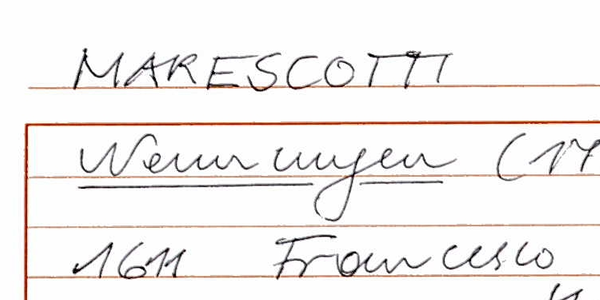 MARESCOTTI
Nennungen (17
1611 Francesco